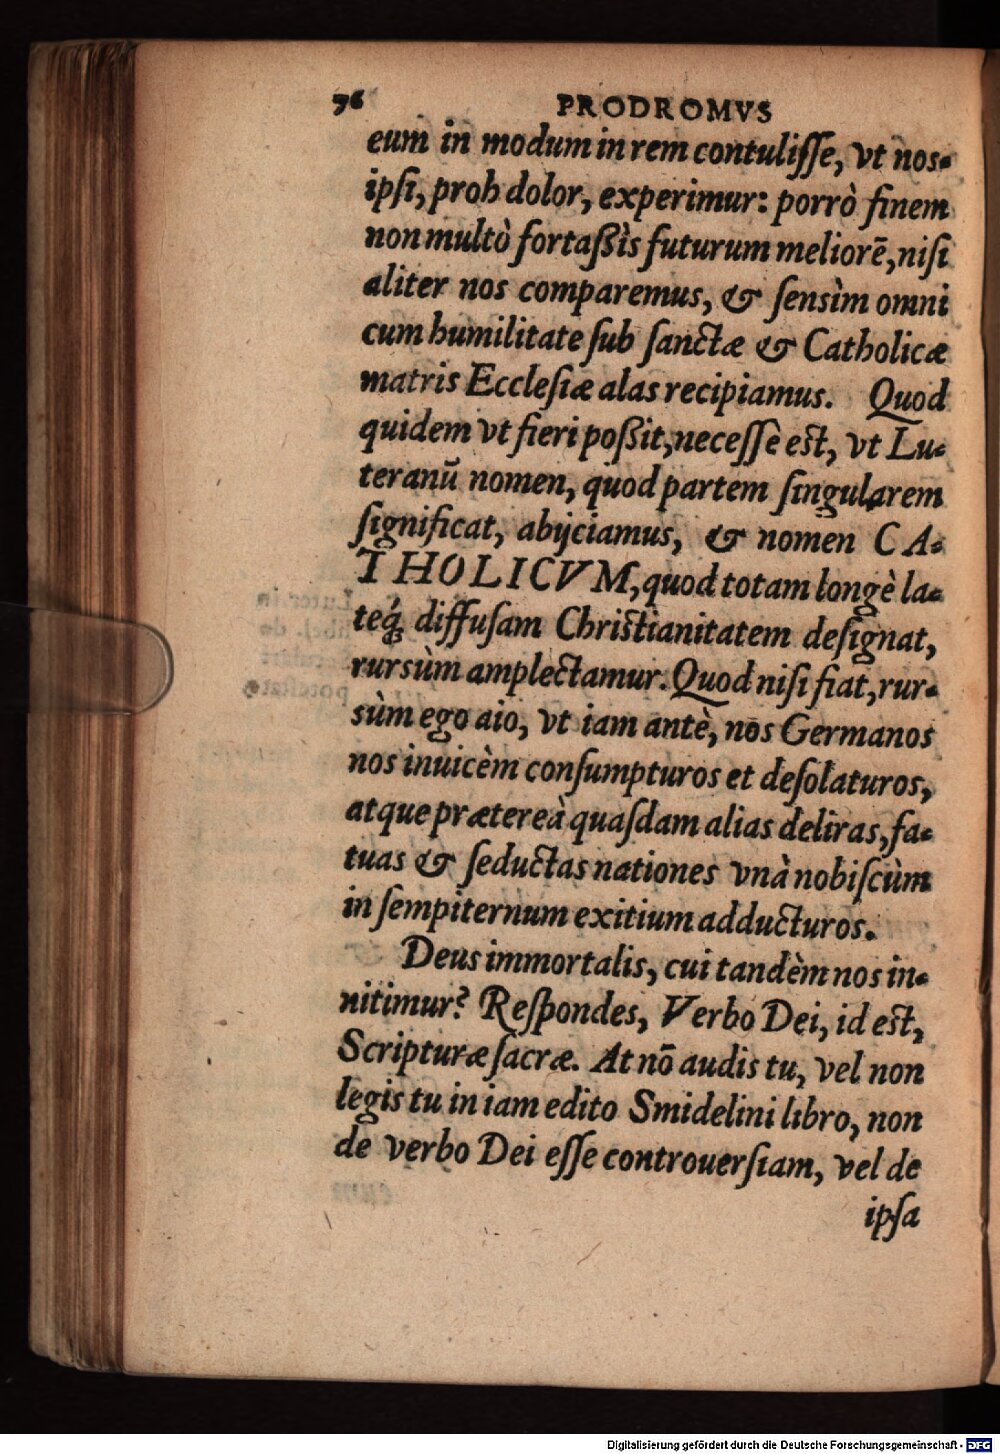 76 PRODROMVS
eum in modum in rem contulisse, vt nos-
ipsi, proh dolor, experimur: porrò finem
non multò fortaßìs futurum meliorē, nisi
aliter nos comparemus, & sensìm omni
cum humilitate sub sanctæ & Catholicæ
matris Ecclesiæ alas recipiamus. Quod
quidem vt fieri poßit, necesse est, vt Lu-
teranū nomen, quod partem singularem
significat, abijciamus, & nomen CA-
THOLICVM, quod totam longè la-
teq́; diffusam Christianitatem designat,
rursùm amplectamur. Quod nisi fiat, rur-
sùm ego aio, vt iam antè, nos Germanos
nos inuicèm consumpturos et desolaturos,
atque prætereà quasdam alias deliras, fa-
tuas & seductas nationes vnà nobiscùm
in sempiternum exitium adducturos.
Deus immortalis, cui tandèm nos in-
nitimur? Respondes, Verbo Dei, id est,
Scripturæ sacræ. At nō audis tu, vel non
legis tu in iam edito Smidelini libro, non
de verbo Dei esse controuersiam, vel de
ipsa
Digitalisierung gefördert durch die Deutsche Forschungsgemeinschaft - DFG